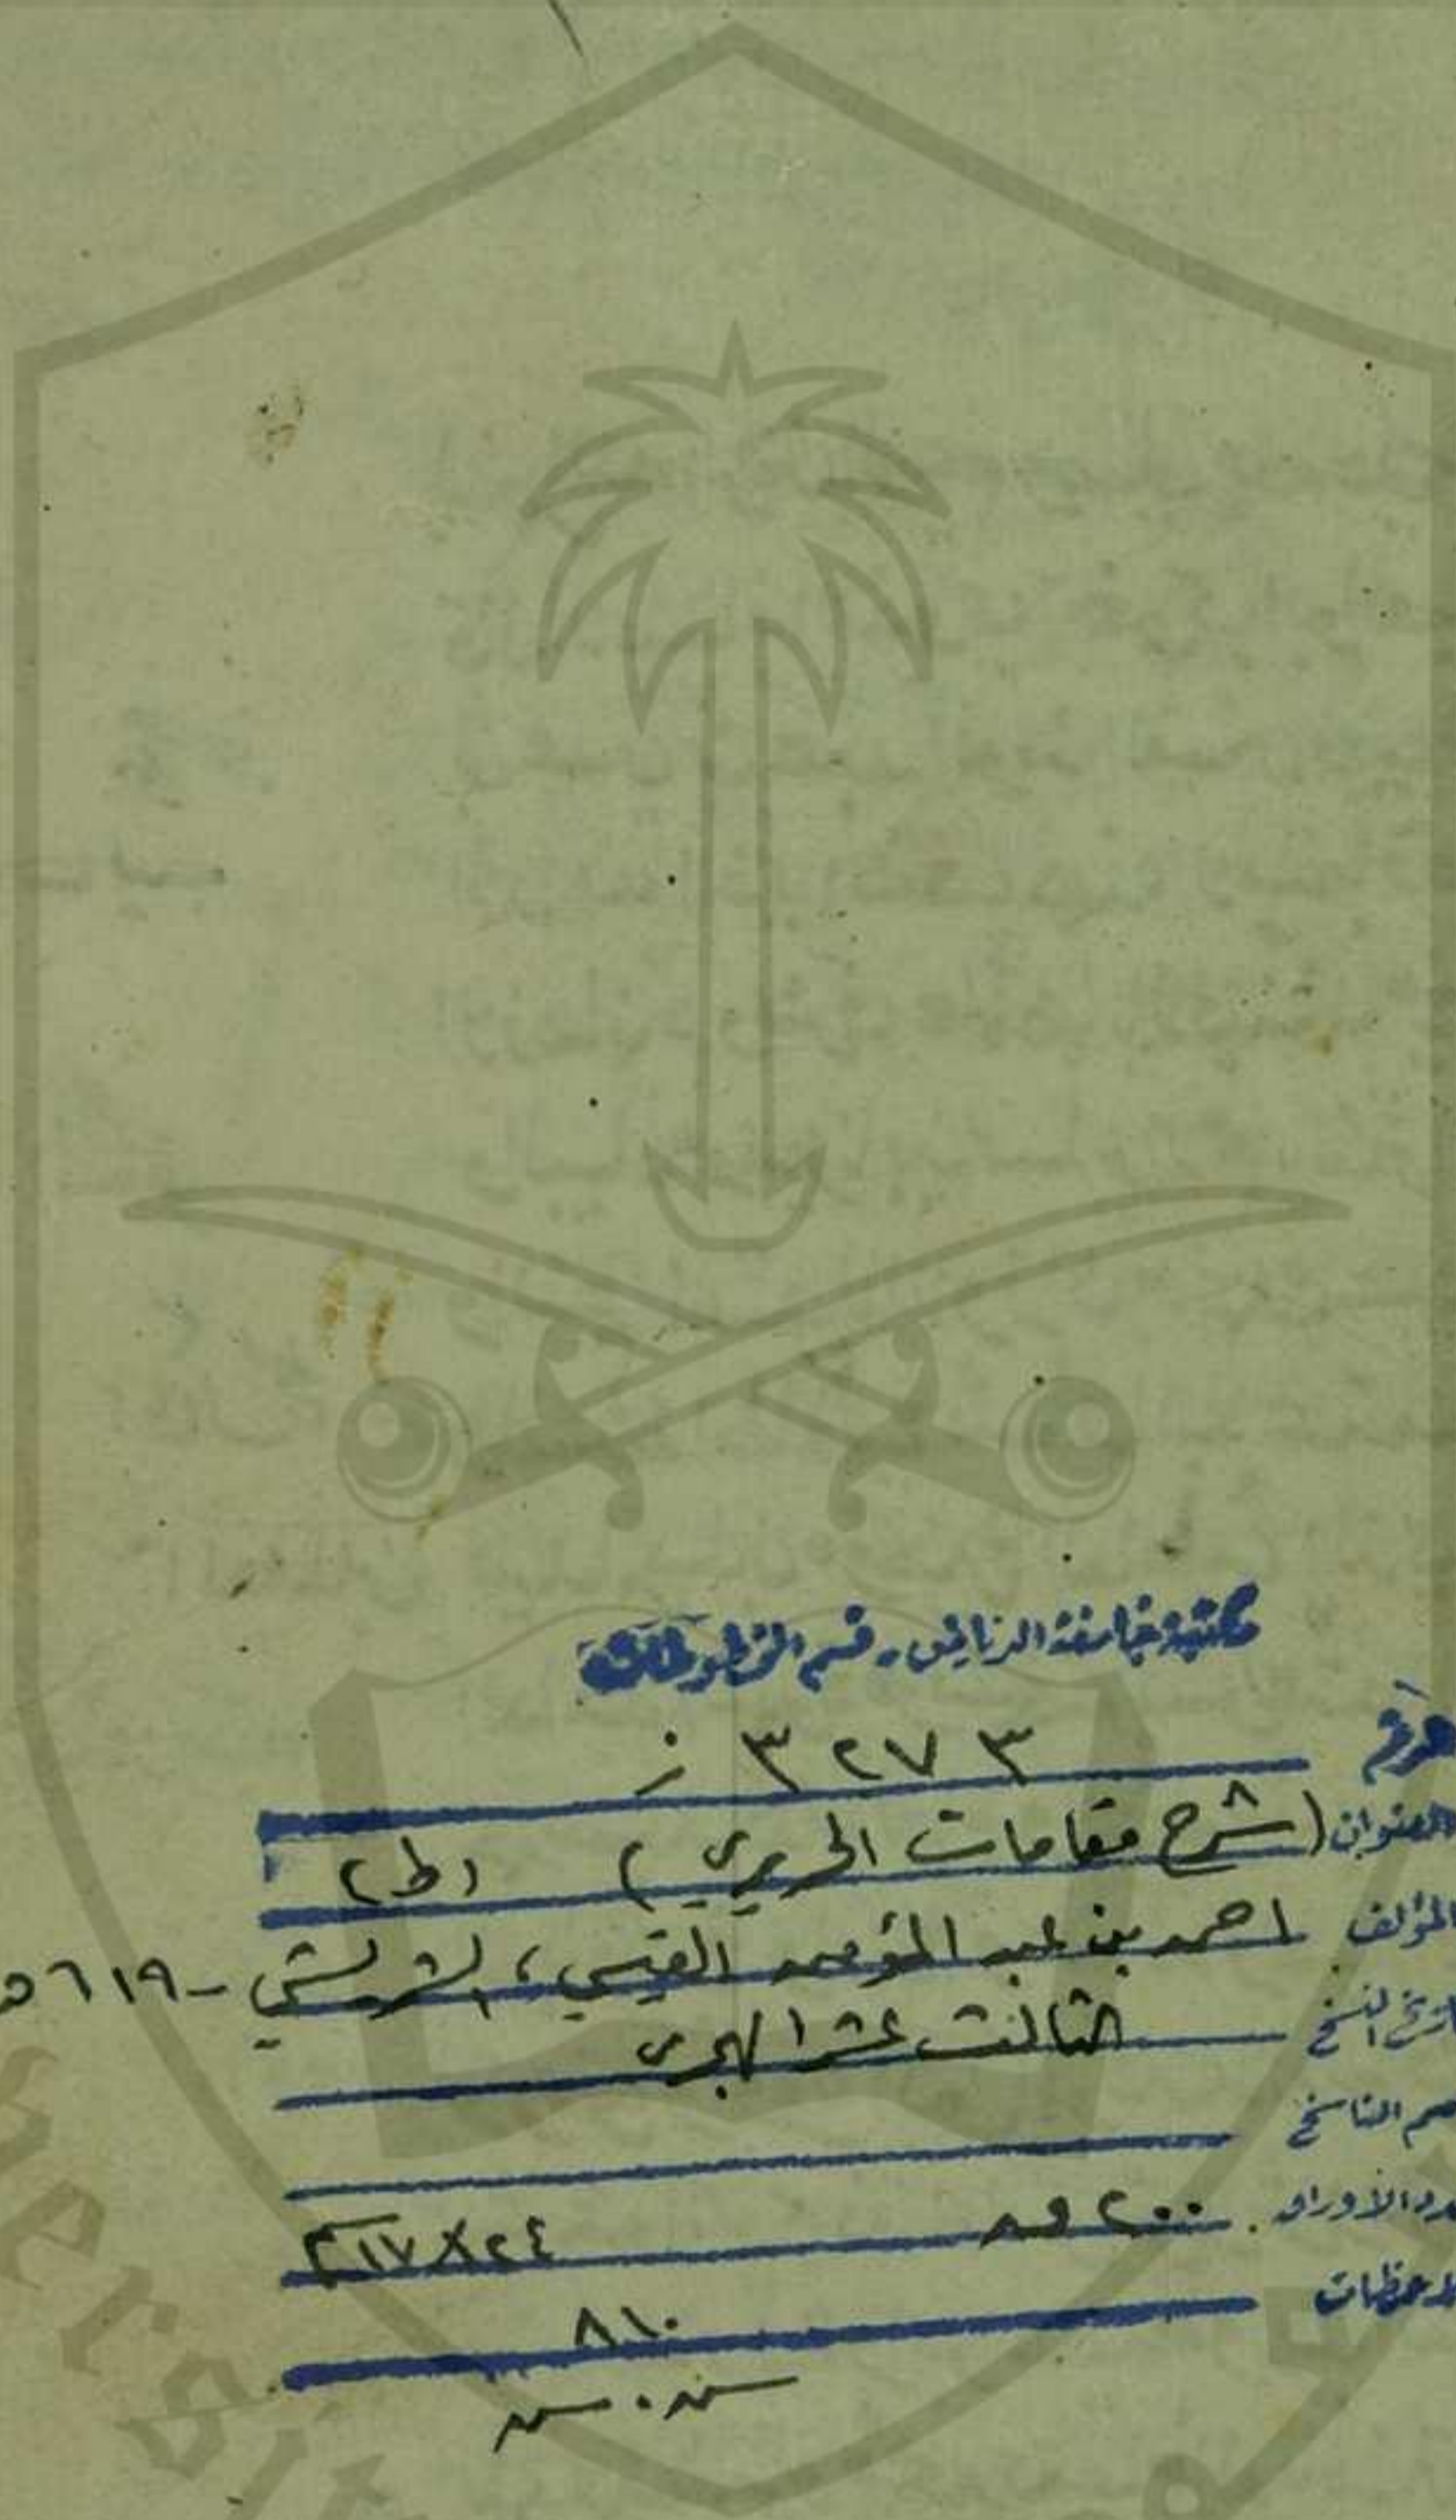 مكتبة جامعة الرياض - قسم المخطوطات
الرقم ٣٢٧٣ ز
العنوان (شرح مقامات الحريري) (ط٢)
المؤلف احمد بن عبد المؤمن القيسي، الشريشي - ٦١٩ه
تاريخ النسخ الثالث عشر الهجري
اسم الناسخ
عدد الاوراق ٢٠٠ ق ٢٤×١٧
ملاحظات ٨١٠